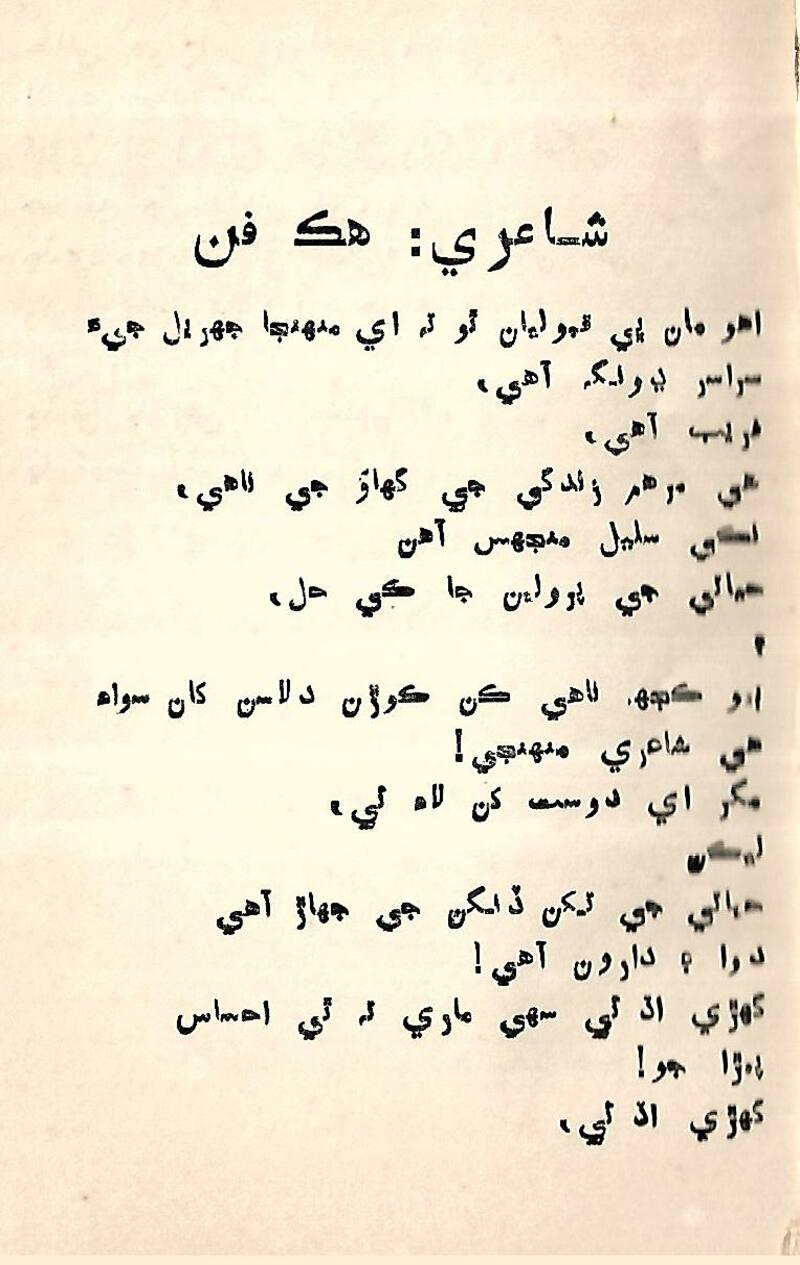 شاعري: هڪ فن
اهو مان ڀي قبوليان ٿو ته اي منهنجا جهريل جيءَ
سراسر ڍونگ آهي،
فريب آهي،
هي مرهم زندگي جي گهاؤ جي ناهي،
نڪي سليل منجهس آهن
حياتي جي پرولين جا ڪي حل،
۽
ٻيو ڪجهه ناهي ڪن ڪوڙن دلاسن کان سواء
هي شاعري منهنجي!
مگر اي دوست کن لاء ئي،
ليڪن
حياتي جي تکن ڏنگن جي جهاڙ آهي
دوا ۽ دارون آهي!
گهڙي اڌ ئي سهي ماري ته ٿي احساس
پيڙا جو!
گهڙي اڌ ئي،